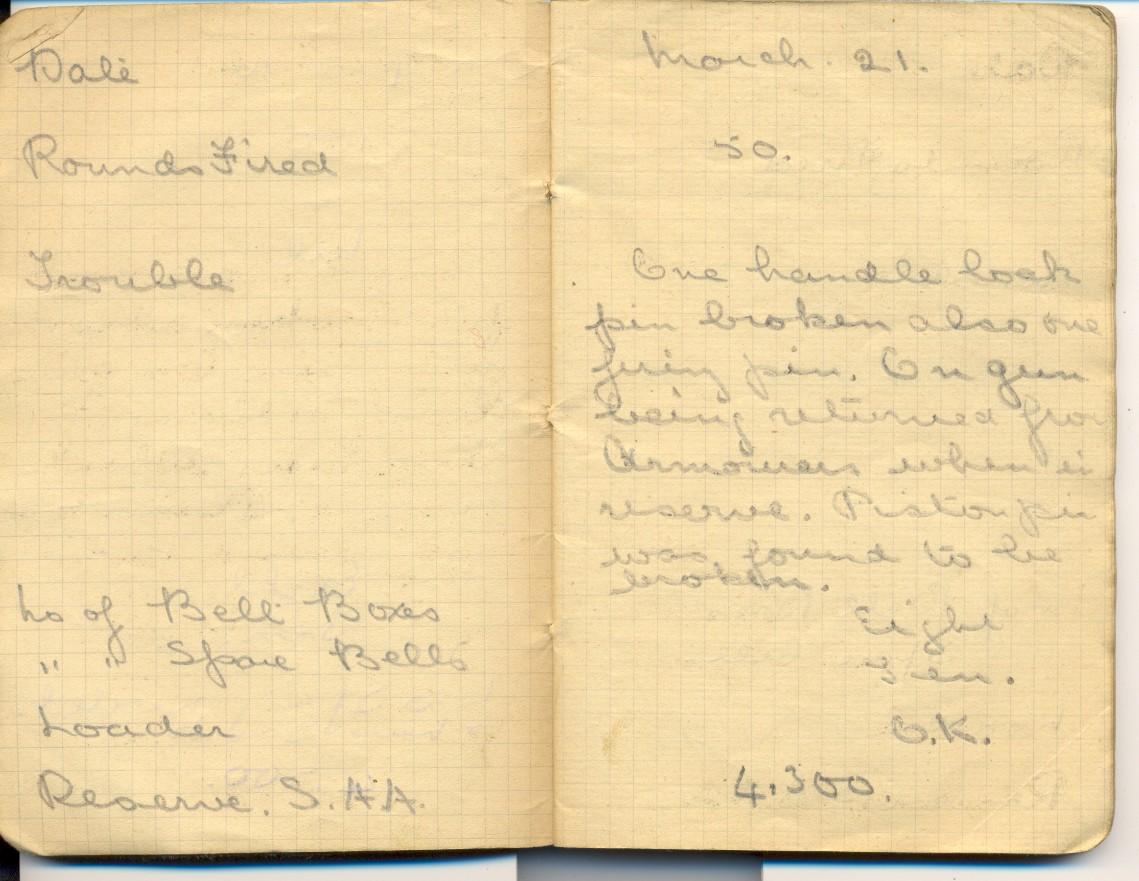 Date
Rounds Fired
Trouble
No of Belt Boxes
" " Spare Belts
Loader
Reserve. S.A.A.
March. 21.
50.
One handle lock
pin broken also one
firing pin. On gun
being returned from
Armourers when in
reserve. Piston pin
was found to be
broken.
Eight
Ten.
O.K.
4,300.